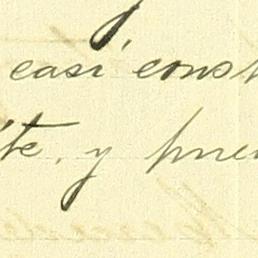 casi const
te, y pue